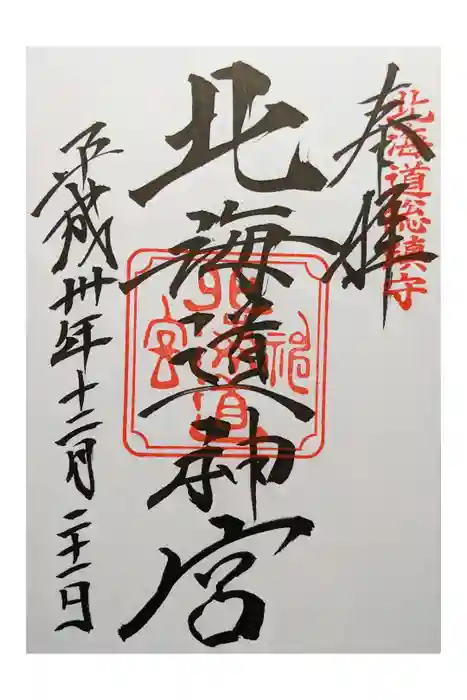 奉拝
北海道総鎮守
北海道神宮
北海道神宮
平成卅年十二月二十一日